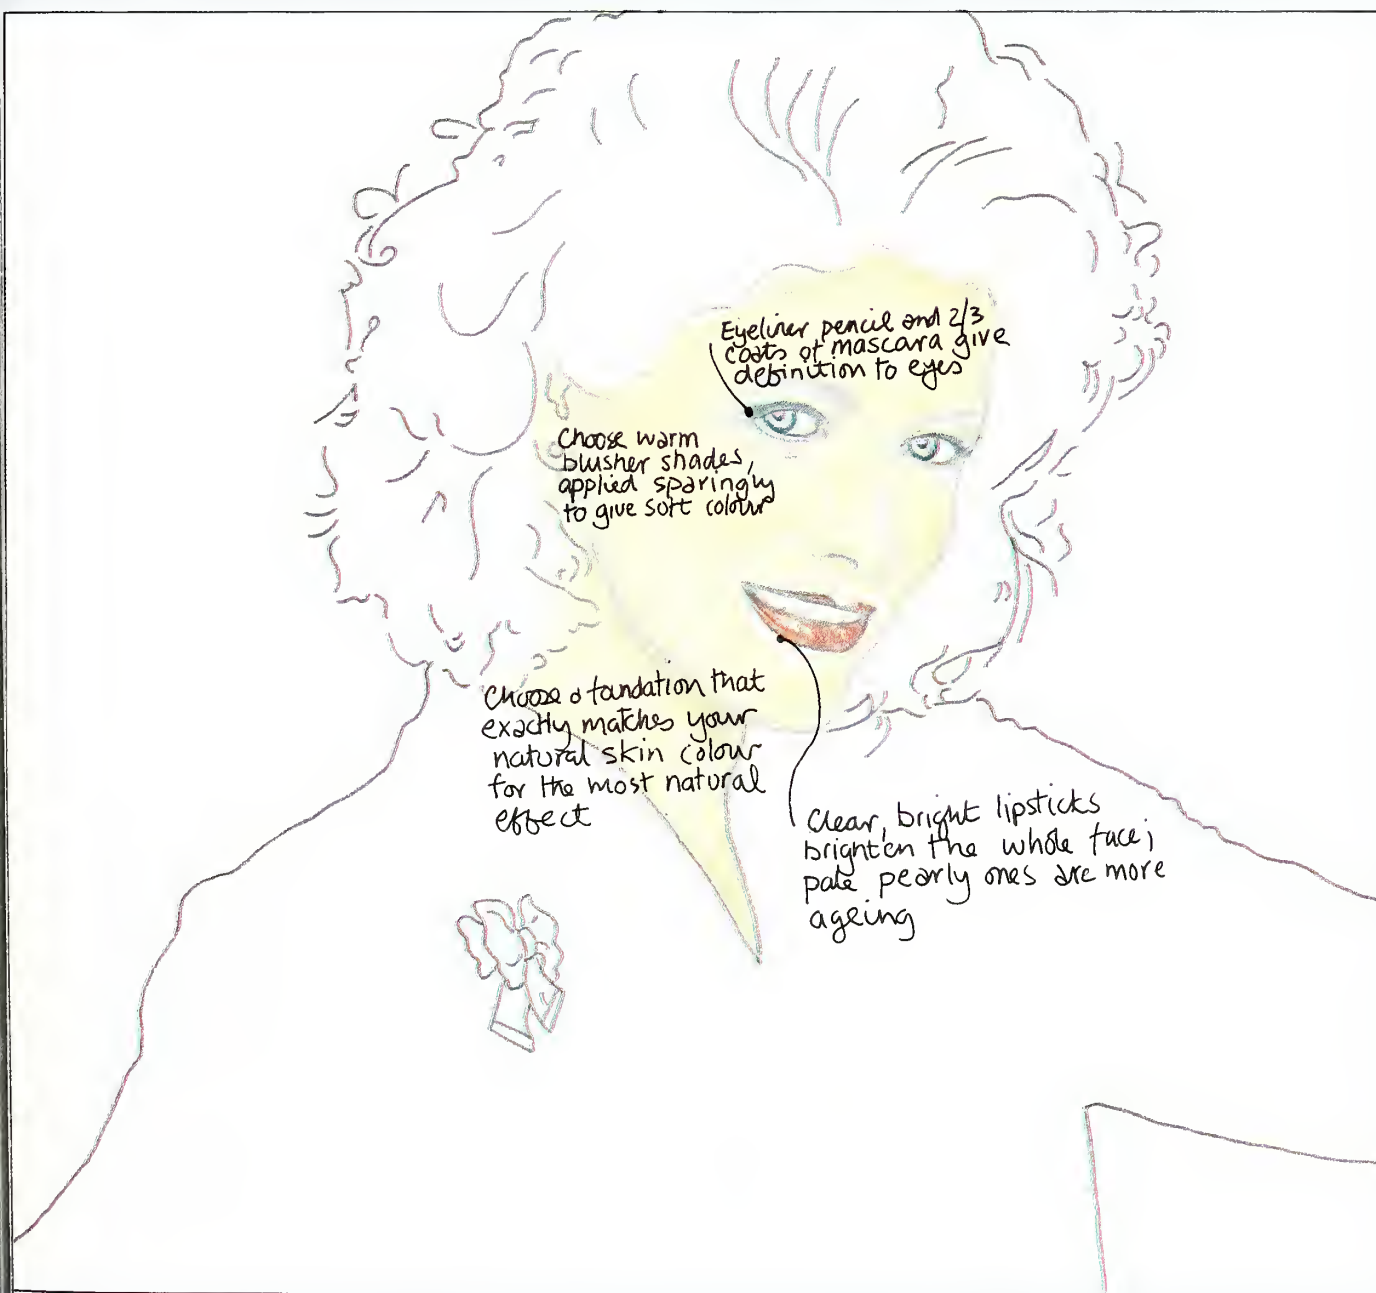 Eyeliner pencil and 2/3
coats of mascara give
definition to eyes
Choose warm
blusher shades,
applied sparingly
to give soft colour
Choose a foundation that
exactly matches your
natural skin colour
for the most natural
effect
Clear, bright lipsticks
brighten the whole face;
pale pearly ones are more
ageing